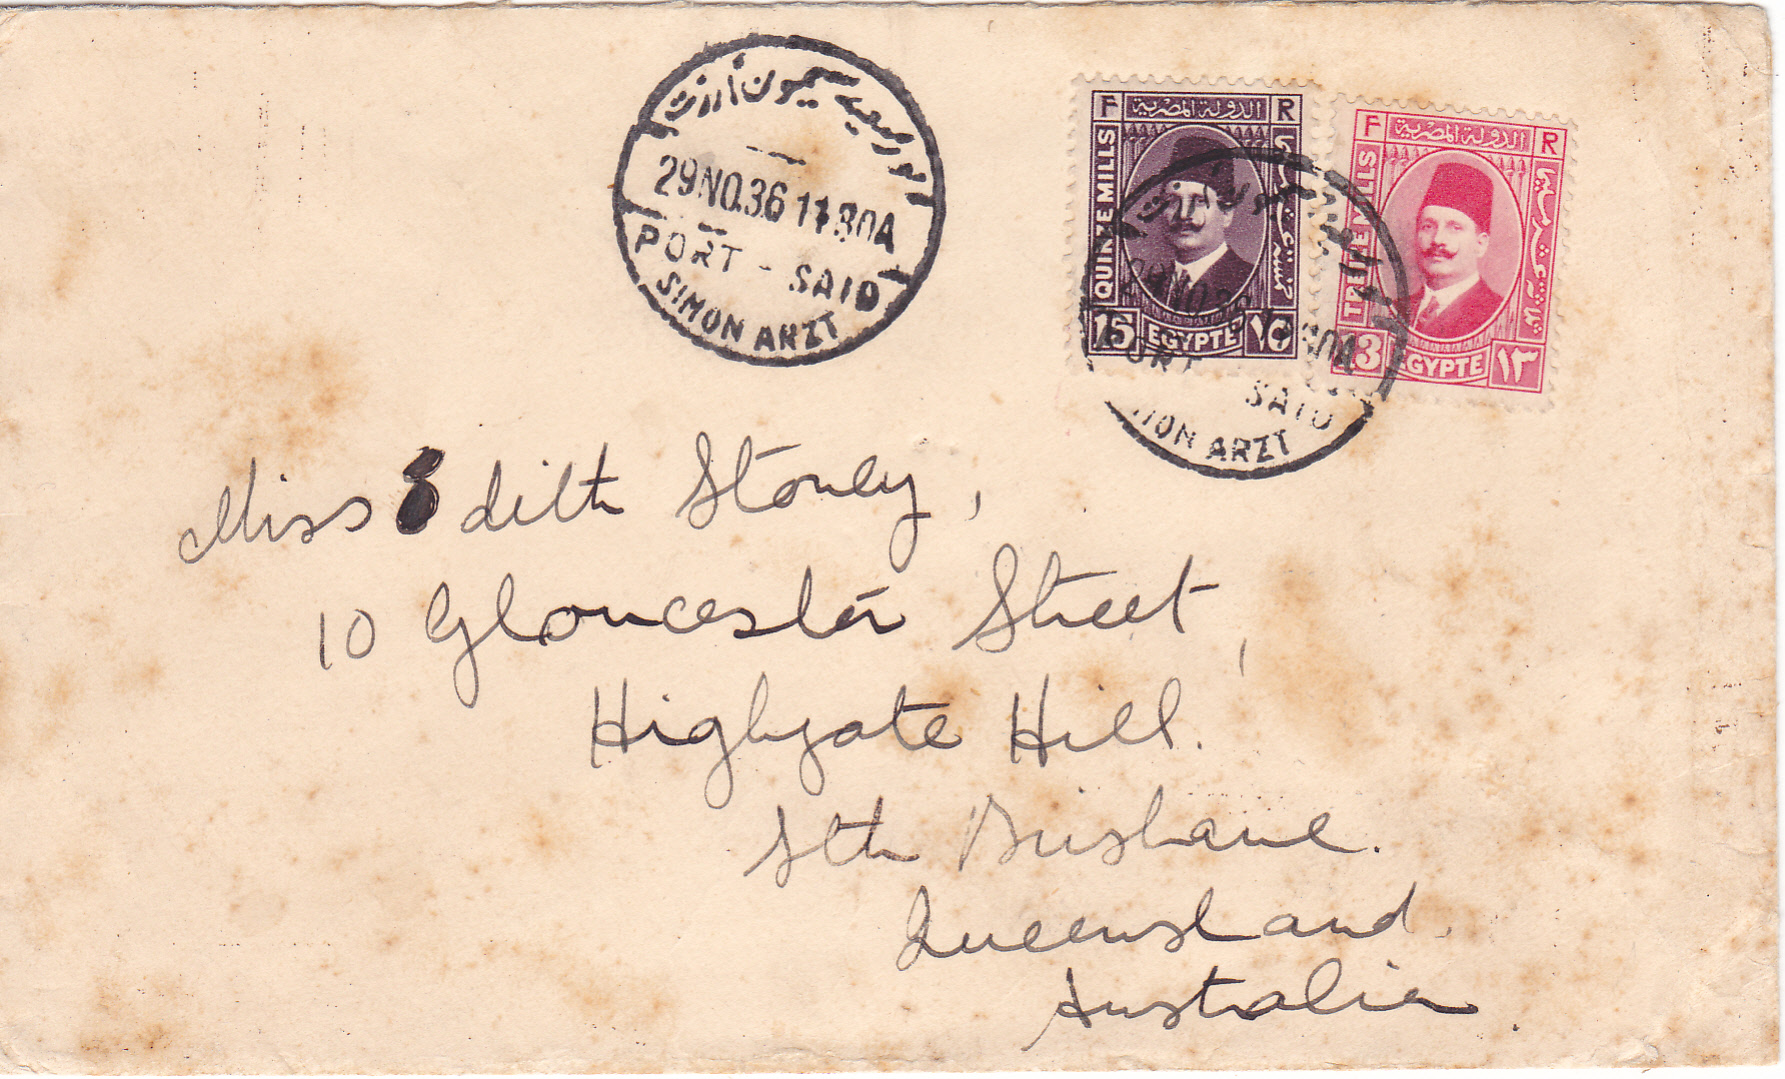 بور سعيد سيمون أرزت
29NO.36 11 30A
PORT - SAID
SIMON ARZT
F الدولة المصرية R
QUINZE MILLS
خمسة عشر مليما
15 EGYPTE ١٥
F الدولة المصرية R
TREIZE MILLS
ثلاثة عشر مليما
13 EGYPTE ١٣
PORT SAID
ARZT
Miss Edith Stoney,
10 Gloucester Street,
Highgate Hill.
Sth Brisbane.
Queensland.
Australia.